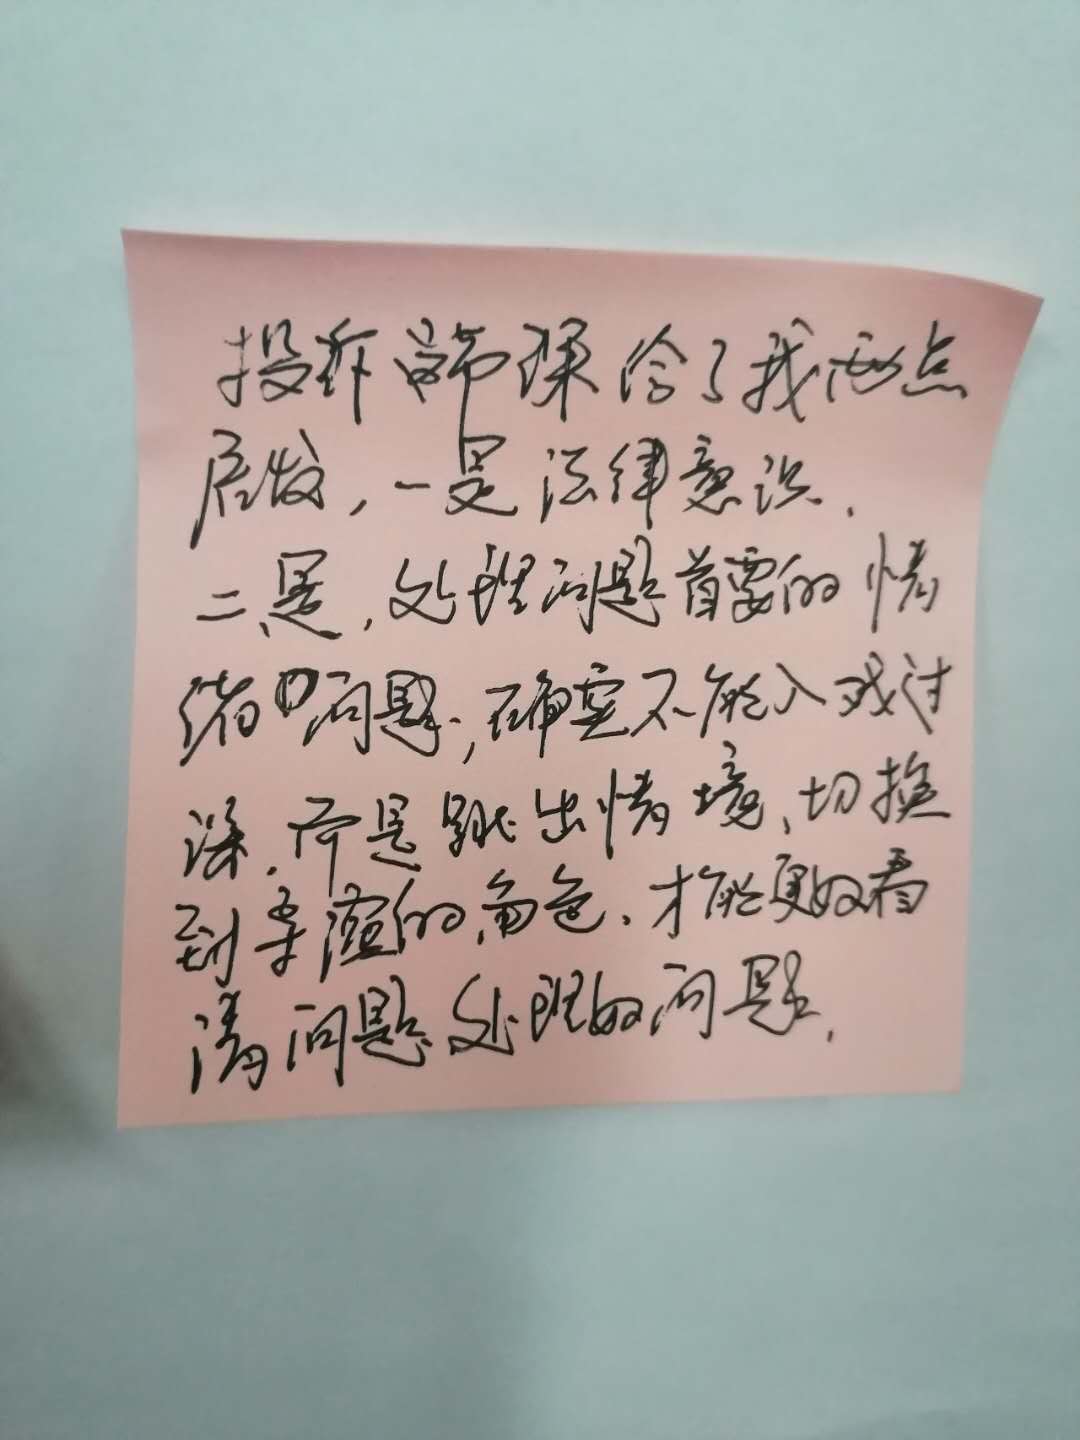 投诉这节课给了我两点
启发，一是法律意识.
二是，处理问题首要的情
绪问题，确实不能入戏过
深.而是跳出情境、切换
到幸溢的角色、才能更好看
清问题处理好问题.